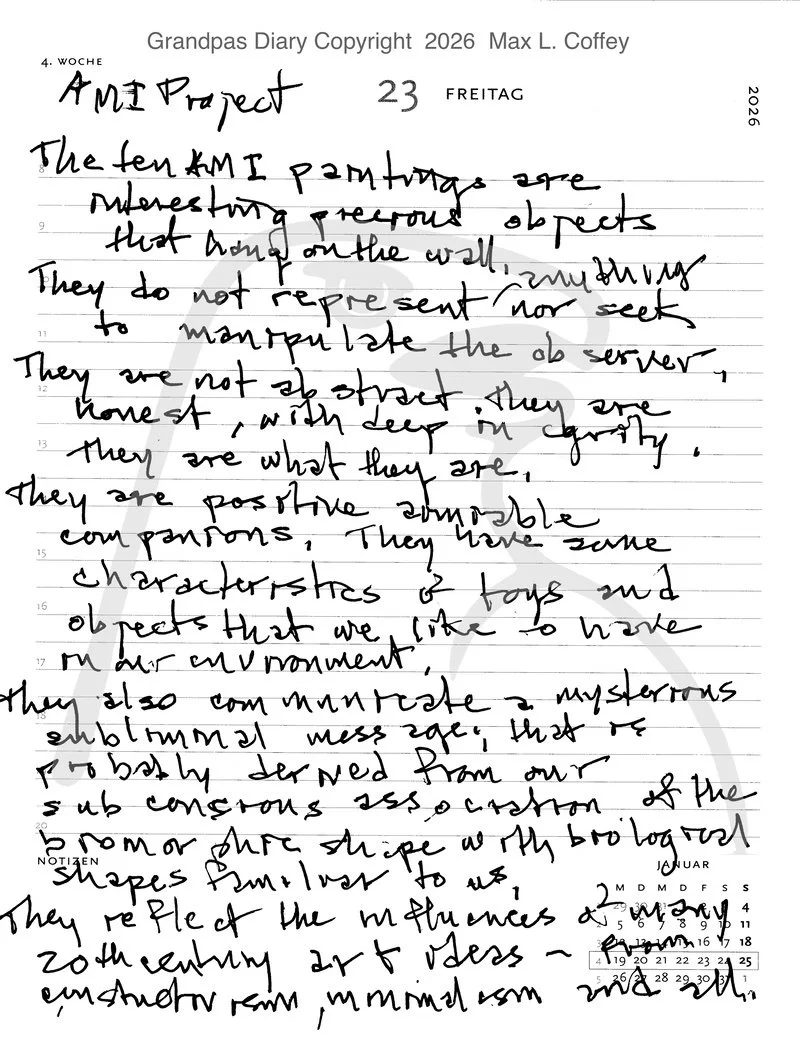 Grandpas Diary Copyright 2026 Max L. Coffey
4. WOCHE
AMI Project
23 FREITAG
2026
The ten AMI paintings are
interesting precious objects
that hang on the wall.
They do not represent anything nor seek
to manipulate the observer,
They are not abstract. They are
honest, with deep integrity.
They are what they are.
They are positive admirable
companions. They have some
characteristics of toys and
objects that we like to have
in our environment.
They also communicate a mysterious
subliminal message; that is
probably derived from our
subconscious association of the
biomorphic shape with biological
shapes familiar to us.
NOTIZEN
They reflect the influences of many
20th century art ideas – from
constructivism, minimalism and all.
JANUAR
M D M D F S S
4
5 6 7 8 9 10 11
16 17 18
4 19 20 21 22 23 24 25
5 26 27 28 29 30 31 1
8
9
11
12
13
15
16
17
18
20